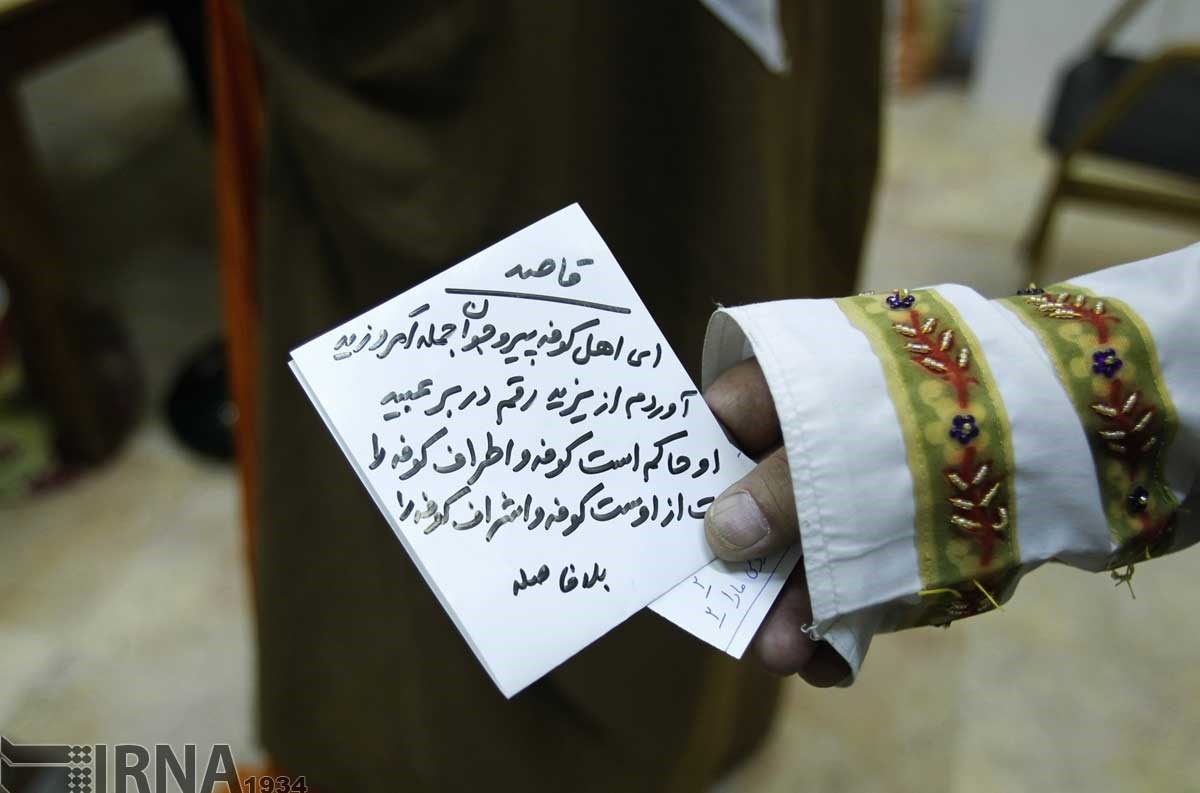 قاصد
ای اهل کوفه پیر و جوان جمله گروزید
آوردم از یزید رقم در بر عبید
او حاکم است کوفه و اطراف کوفه را
ت از اوست کوفه و اشراف کوفه را
بلافاصله
مارا
۲
۲
IRNA
1934